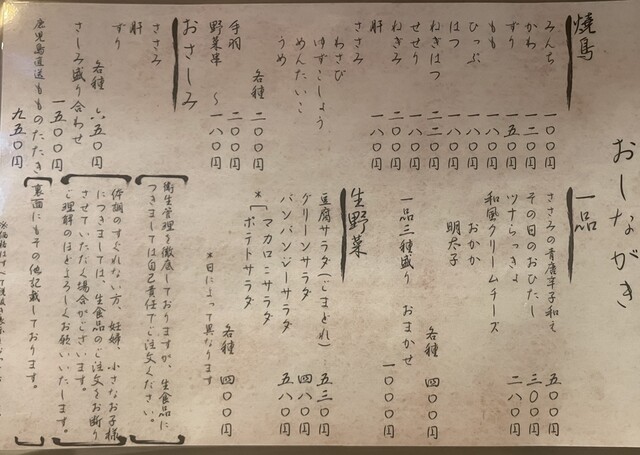 おしながき
焼鳥
みんち 一八〇円
かわ 一二〇円
ずり 一五〇円
もも 一八〇円
ひっぷ 一八〇円
はつ 一八〇円
ねぎはつ 二二〇円
せせり 一八〇円
ねぎみ 二〇〇円
肝 一八〇円
ささみ
わさび
ゆずこしょう
めんたいこ
うめ
各種 二〇〇円
手羽 二〇〇円
野菜串 〜一八〇円
おさしみ
ささみ
肝
ずり
各種 六五〇円
さしみ盛り合わせ 一五〇〇円
鹿児島直送もものたたき 九五〇円
一品
ささみの青唐辛子和え 五〇〇円
その日のおひたし 三〇〇円
ツナらっきょ 二八〇円
和風クリームチーズ
おかか
明太子
各種 四〇〇円
一品三種盛り おまかせ 一〇〇〇円
生野菜
豆腐サラダ(ごまどれ) 五三〇円
グリーンサラダ 四八〇円
バンバンジーサラダ 五八〇円
*マカロニサラダ
ポテトサラダ
各種 四〇〇円
*日によって異なります
衛生管理を徹底しておりますが、生食品に
つきましては自己責任でご注文ください。
体調のすぐれない方、妊婦、小さなお子様
につきましては、生食品のご注文をお断り
させていただく場合がございます。
ご理解のほどよろしくお願いいたします。
裏面にもその他記載しております。